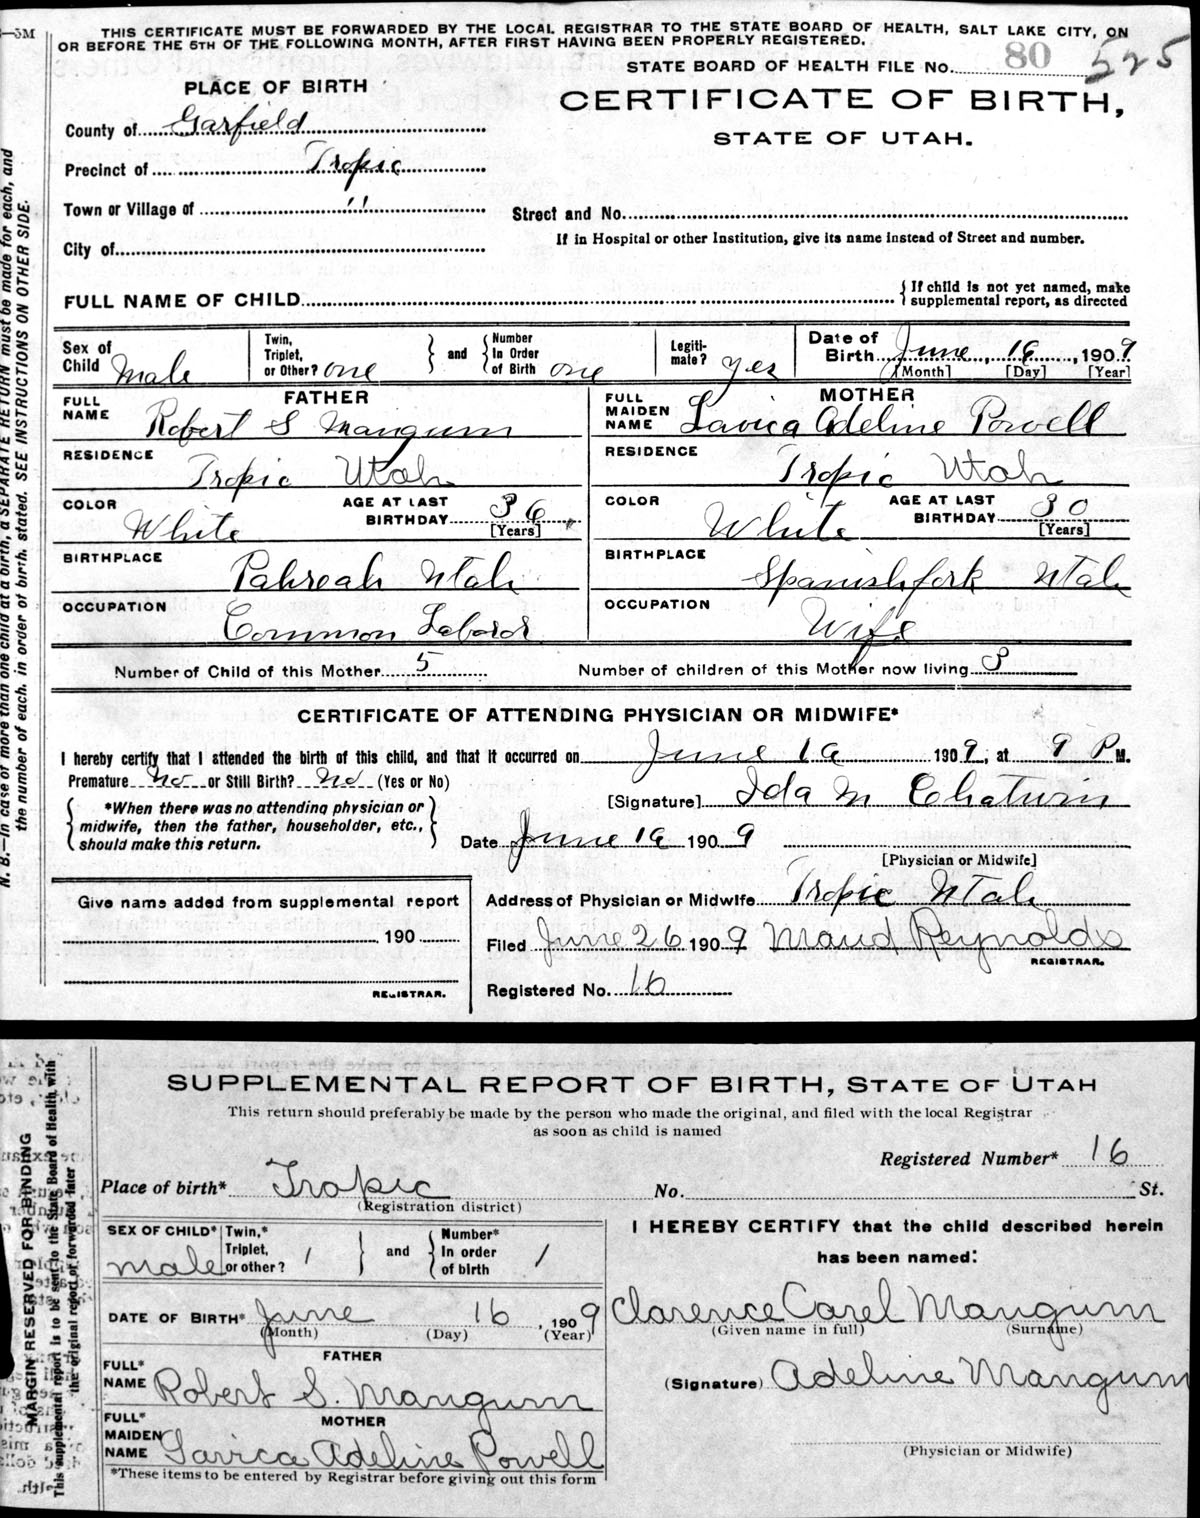 —3M
THIS CERTIFICATE MUST BE FORWARDED BY THE LOCAL REGISTRAR TO THE STATE BOARD OF HEALTH, SALT LAKE CITY, ON
OR BEFORE THE 5TH OF THE FOLLOWING MONTH, AFTER FIRST HAVING BEEN PROPERLY REGISTERED.
STATE BOARD OF HEALTH FILE No. 80 525
PLACE OF BIRTH
CERTIFICATE OF BIRTH,
STATE OF UTAH.
County of Garfield
Precinct of Tropic
Town or Village of "
Street and No.
City of
If in Hospital or other Institution, give its name instead of Street and number.
FULL NAME OF CHILD
{ If child is not yet named, make
supplemental report, as directed
Sex of Child Male
Twin, Triplet, or Other? one } and { Number In Order of Birth one
Legiti-mate? yes
Date of Birth June, 16, 1909
[Month] [Day] [Year]
FATHER
FULL NAME Robert S Mangum
MOTHER
FULL MAIDEN NAME Lavica Adeline Powell
RESIDENCE Tropic Utah
RESIDENCE Tropic Utah
COLOR White AGE AT LAST BIRTHDAY 36 [Years]
COLOR White AGE AT LAST BIRTHDAY 30 [Years]
BIRTHPLACE Pahreah Utah
BIRTHPLACE Spanishfork Utah
OCCUPATION Common Labor
OCCUPATION Wife
Number of Child of this Mother 5 Number of children of this Mother now living 3
CERTIFICATE OF ATTENDING PHYSICIAN OR MIDWIFE*
I hereby certify that I attended the birth of this child, and that it occurred on June 16 1909, at 9 P M.
Premature No or Still Birth? No (Yes or No)
[Signature] Ida M Chatwin
{ *When there was no attending physician or
midwife, then the father, householder, etc.,
should make this return. }
Date June 16 1909
[Physician or Midwife]
Give name added from supplemental report
190
REGISTRAR.
Address of Physician or Midwife Tropic Utah
Filed June 26 1909 Maud Reynolds
REGISTRAR.
Registered No. 16
N. B.—In case of more than one child at a birth, a SEPARATE RETURN must be made for each, and
the number of each, in order of birth, stated. SEE INSTRUCTIONS ON OTHER SIDE.
SUPPLEMENTAL REPORT OF BIRTH, STATE OF UTAH
This return should preferably be made by the person who made the original, and filed with the local Registrar
as soon as child is named
Registered Number* 16
Place of birth* Tropic No. St.
(Registration district)
SEX OF CHILD* male
Twin,* Triplet, or other? 1 } and { Number* In order of birth 1
DATE OF BIRTH* June 16, 1909
(Month) (Day) (Year)
FATHER
FULL* NAME Robert S. Mangum
MOTHER
FULL* MAIDEN NAME Lavica Adeline Powell
*These items to be entered by Registrar before giving out this form
I HEREBY CERTIFY that the child described herein
has been named:
Clarence Carel Mangum
(Given name in full) (Surname)
(Signature) Adeline Mangum
(Physician or Midwife)
MARGIN RESERVED FOR BINDING
This supplemental report is to be sent to the State Board of Health with
the original report if forwarded later